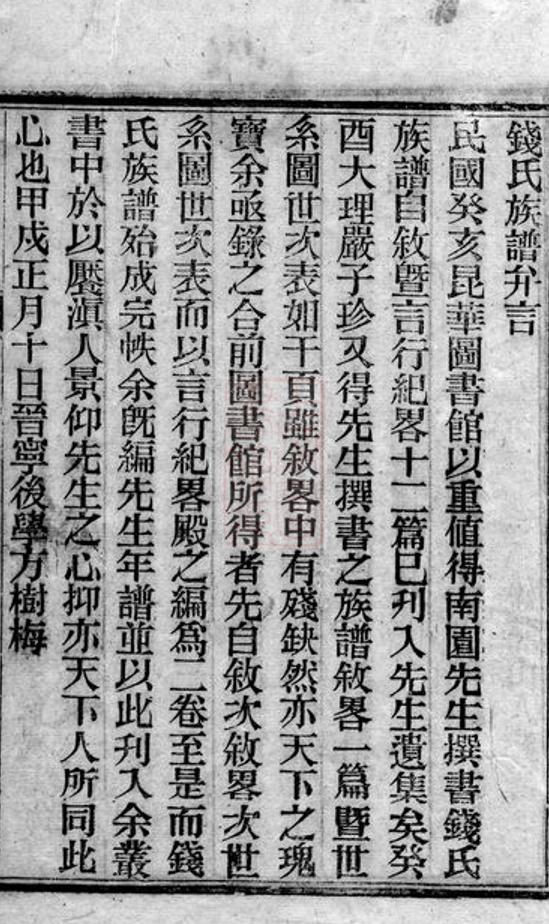 錢氏族譜弁言
民國癸亥昆華圖書館以重值得南園先生撰書錢氏
族譜自敘曁言行紀畧十二篇已刋入先生遺集矣癸
酉大理嚴子珍又得先生撰書之族譜敘畧一篇曁世
系圖世次表如干頁雖敘畧中有殘缺然亦天下之瑰
寶余亟錄之合前圖書館所得者先自敘次敘畧次世
系圖世次表而以言行紀畧殿之編爲二卷至是而錢
氏族譜始成完帙余旣編先生年譜並以此刋入余叢
書中於以饜滇人景仰先生之心抑亦天下人所同此
心也甲戍正月十日晉寧後學方樹梅